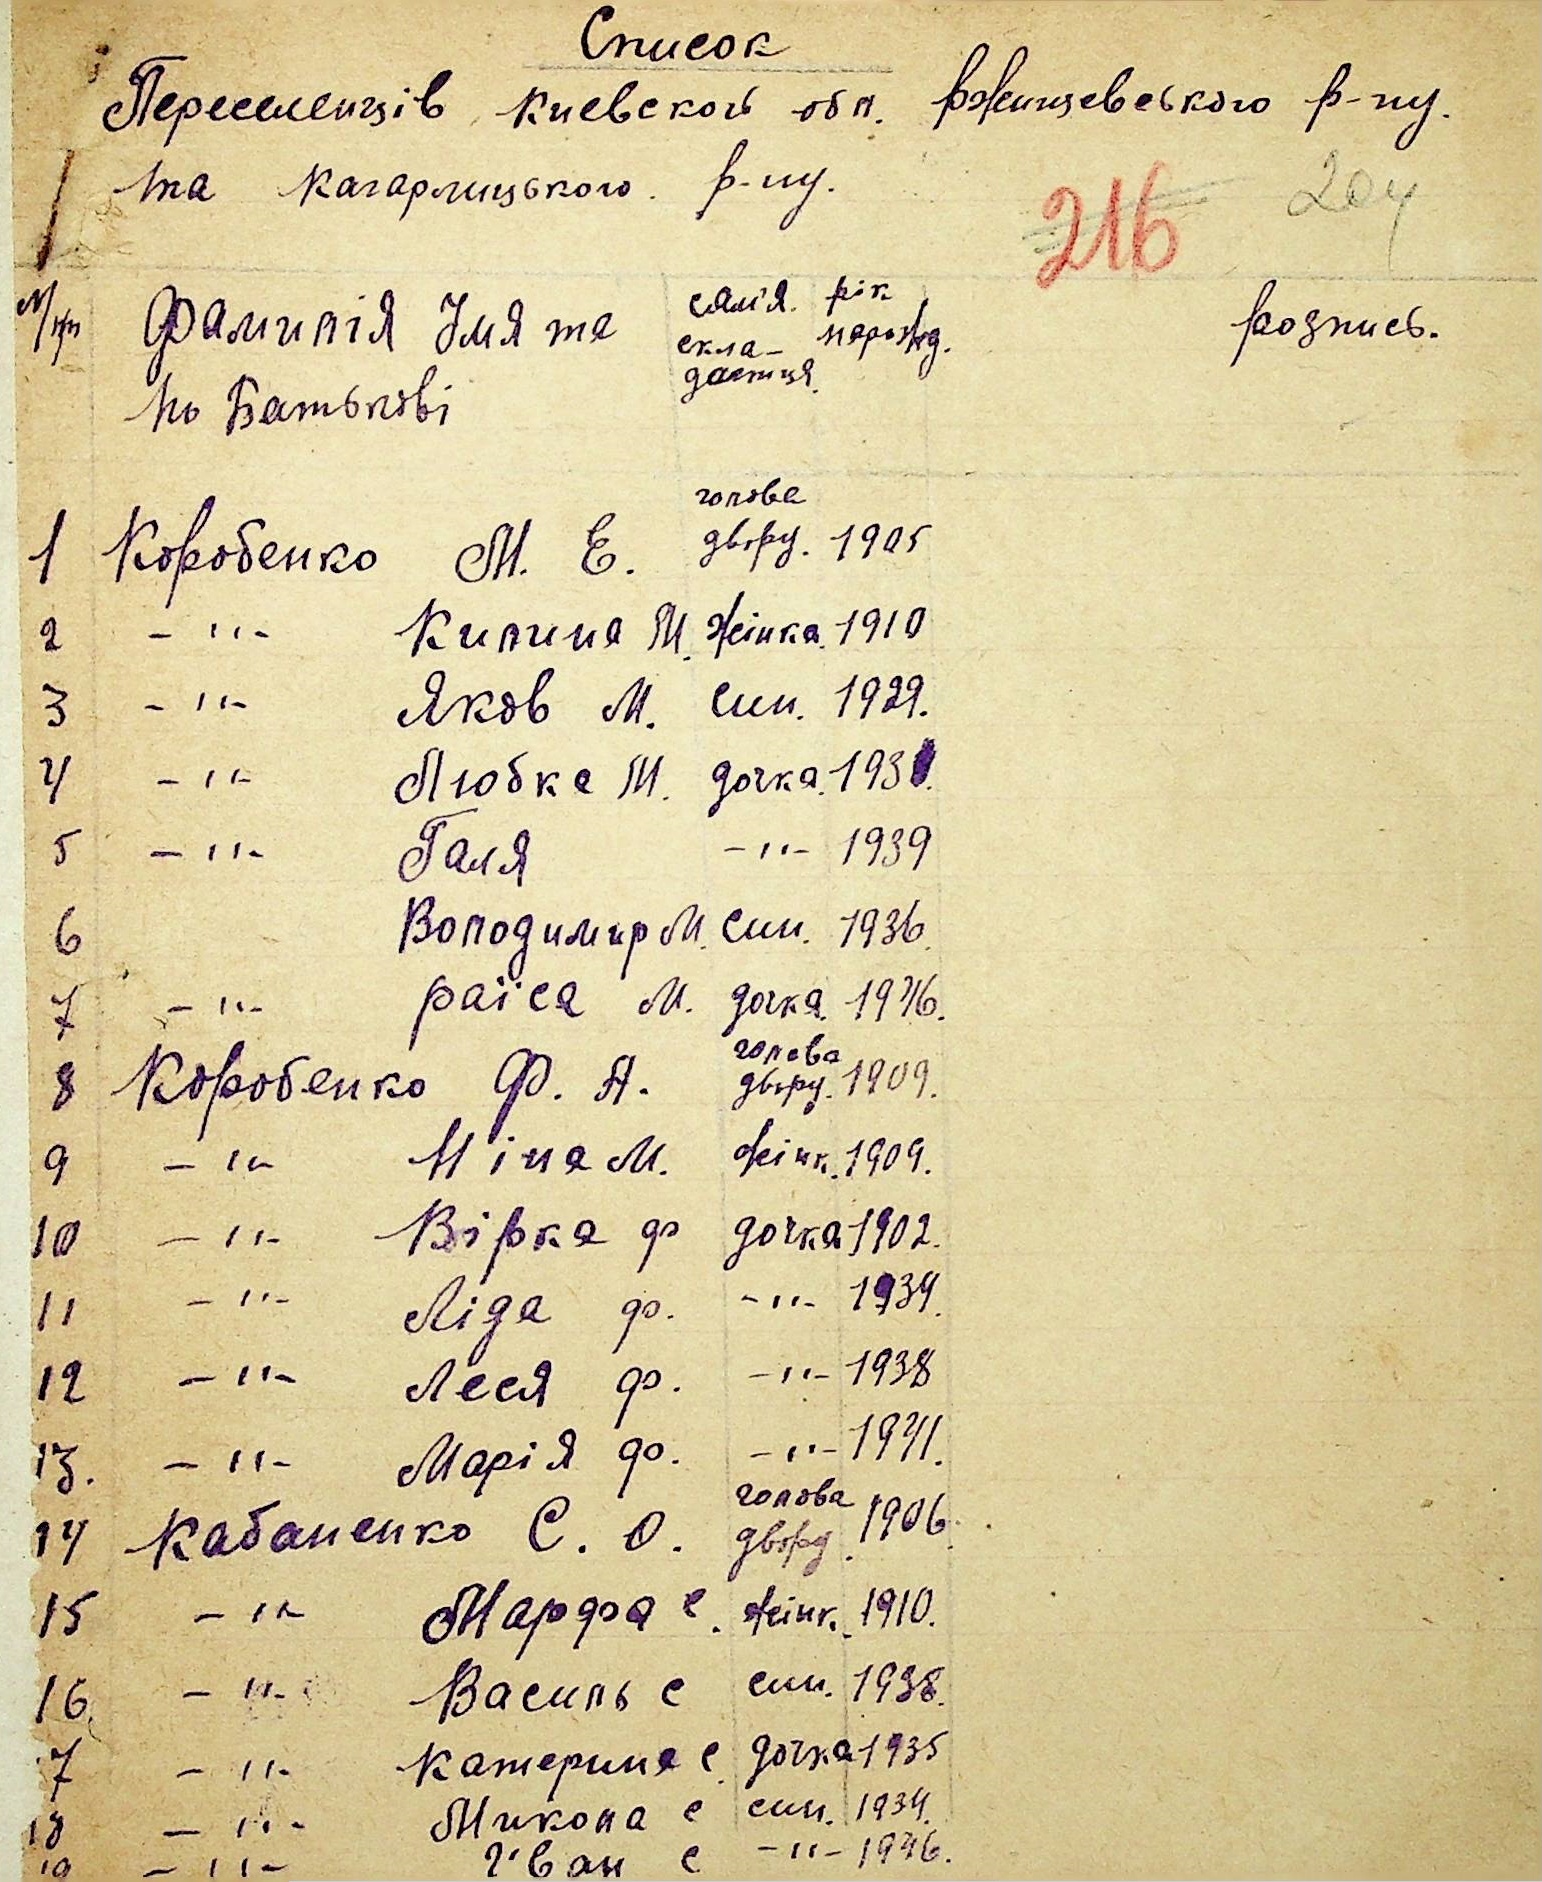 Список
Переселенців Киевской обл. Ржищевського р-ну.
та Кагарлицького р-ну.
216 204
№/пп Фамилія Імя та по Батькові сям'я. складается. рік нарожд. розпись.
1 Коробенко М. Е. голова двору. 1905
2 -"- Килина М. жінка. 1910
3 -"- Яков М. син. 1929.
4 -"- Любка М. дочка. 193
5 -"- Галя -"- 1939
6 Володимир М. син. 1936.
7 -"- Раїса М. дочка. 1946.
8 Коробенко Ф. А. голова двору. 1909.
9 -"- Ніна М. жінк. 1909.
10 -"- Вірка Ф дочка 1902.
11 -"- Ліда Ф. -"- 1934.
12 -"- Леся Ф. -"- 1938
13. -"- Марія Ф. -"- 1941.
14 Кабаненко С. О. голова двору. 1906.
15 -"- Марфа С. жінк. 1910.
16. -"- Василь С син. 1938.
17 -"- Катерина С. дочка 1935
18 -"- Микола С син. 1934.
19 -"- Іван С -"- 1946.